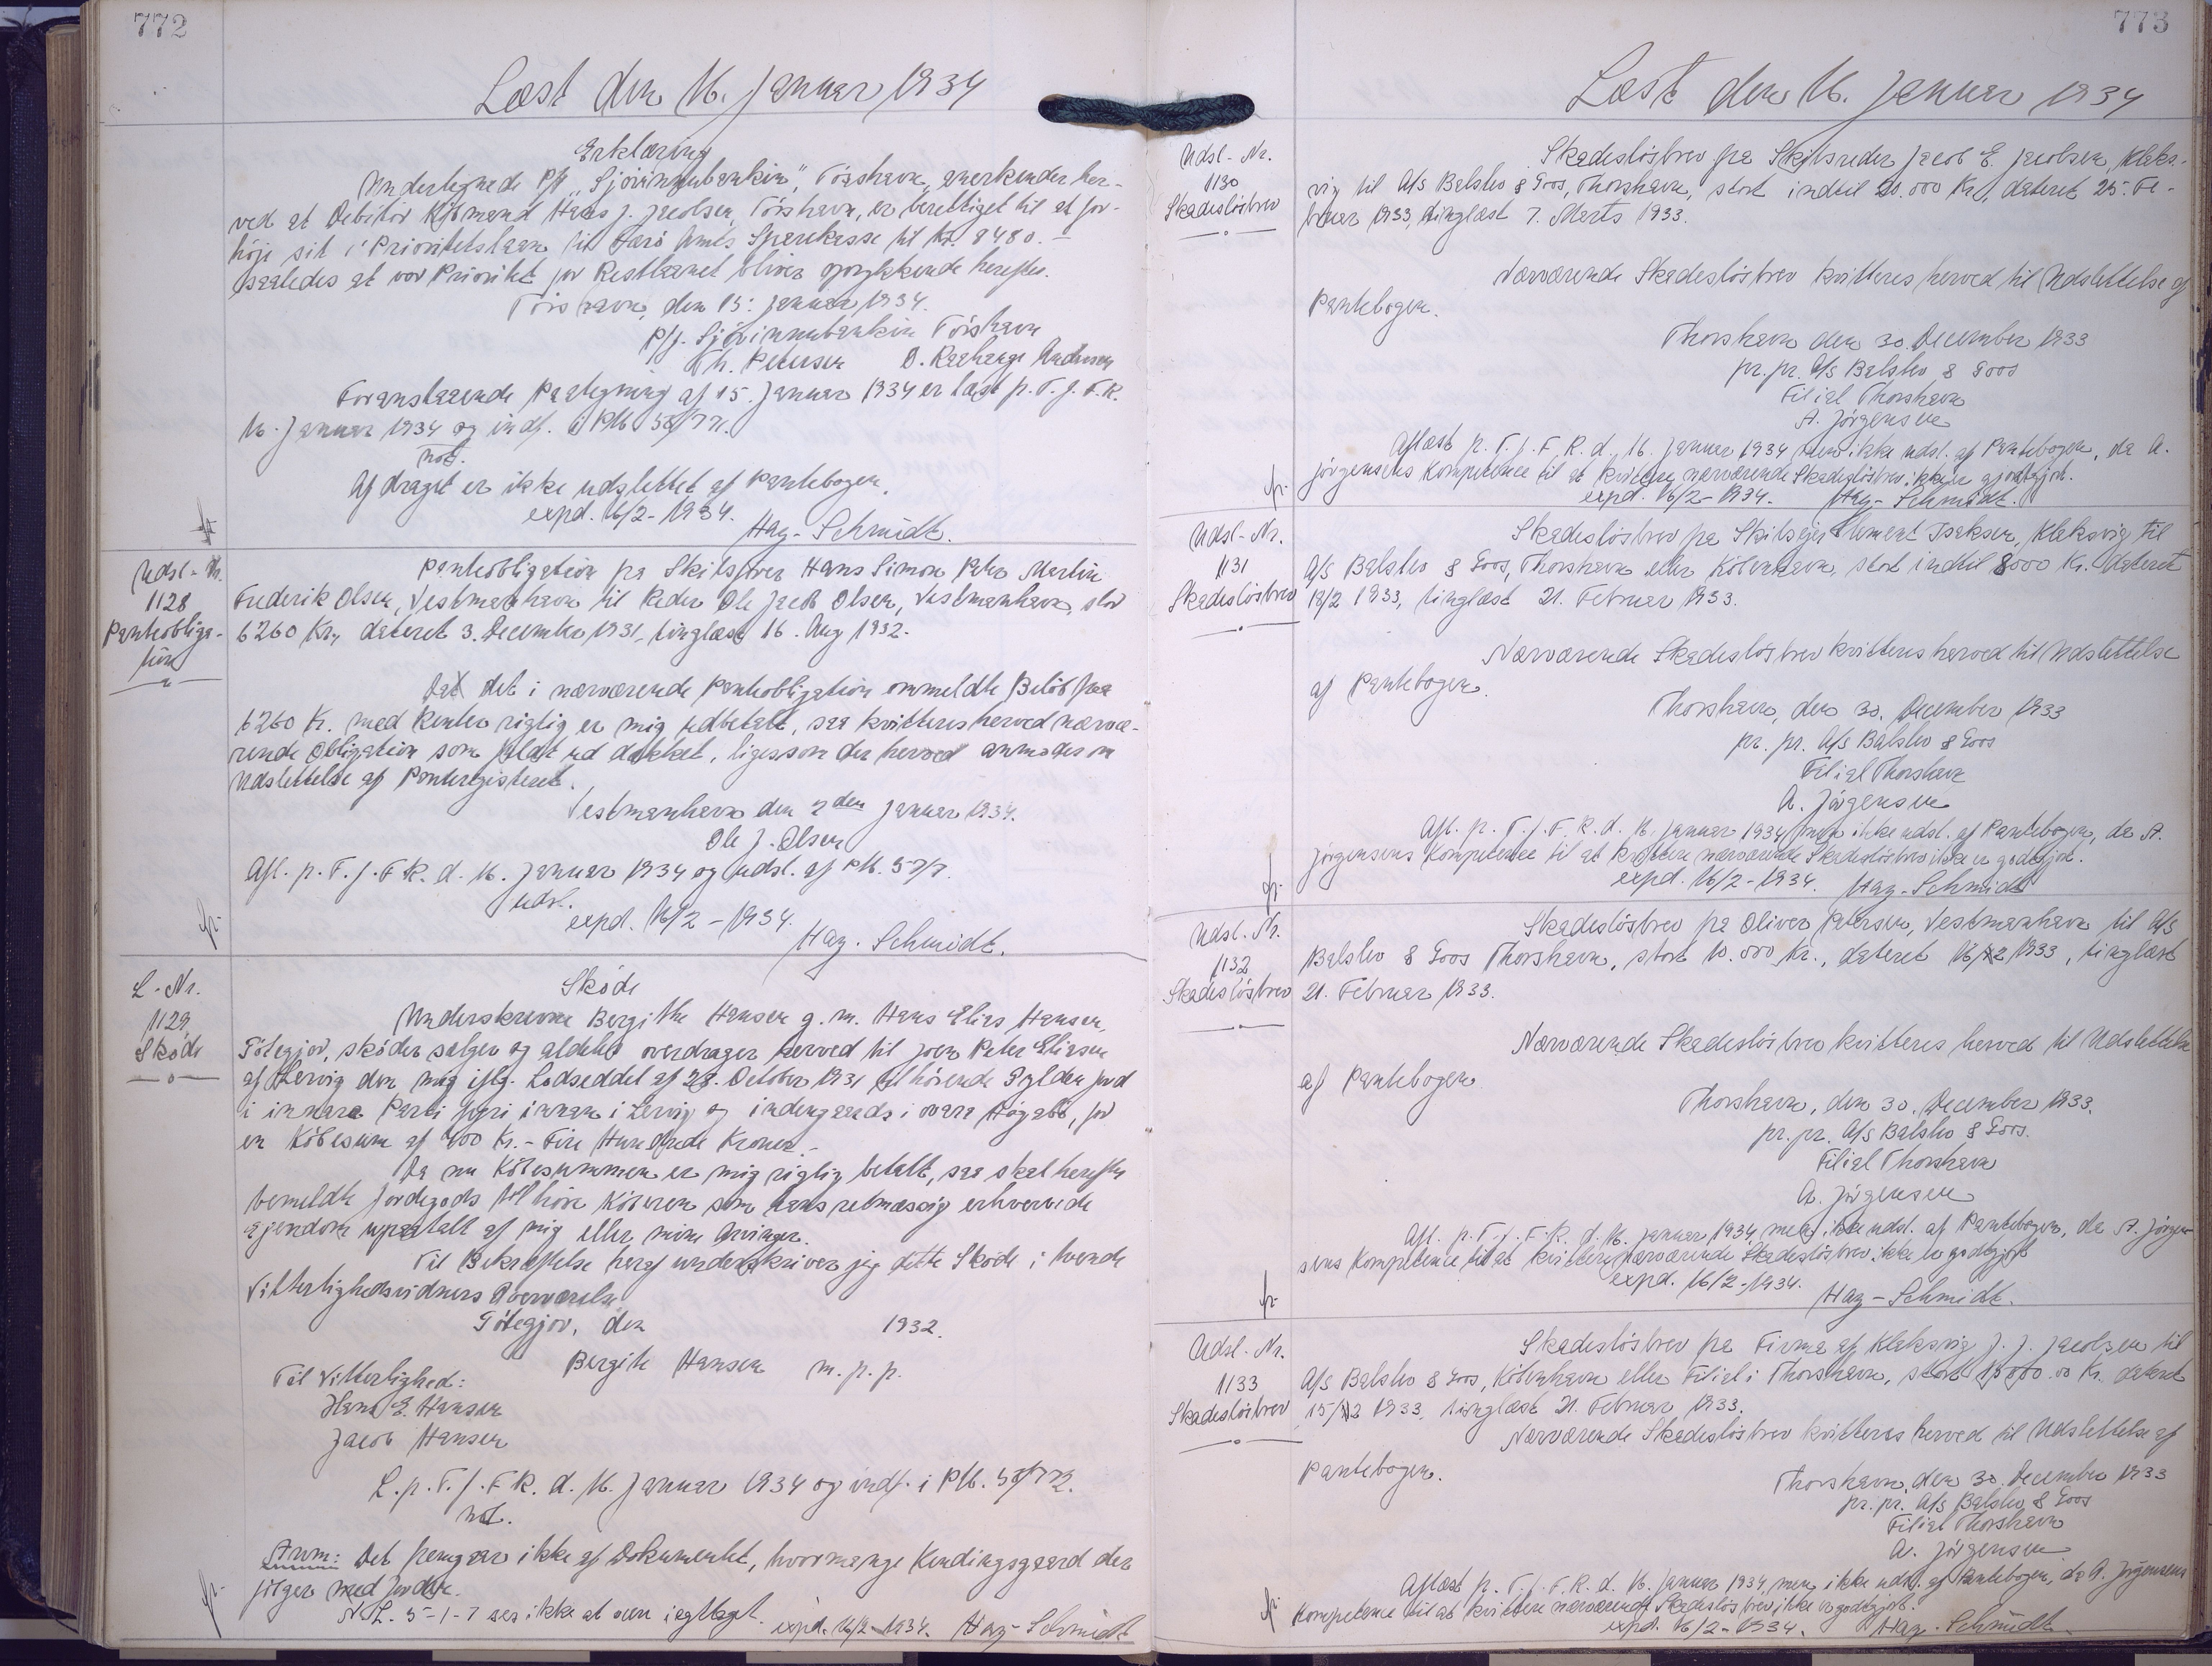 772
Læst den 16. Januar 1934
Erklæring
Undertegnede P/f „Sjóvinnubankin", Tórshavn, anerkender her-
ved at Debitor Købmand Hans J. Jacobsen, Tórshavn, er berettiget til at for-
höje sit 1' Prioritetslaan til Færö Amts Sparekasse til Kr. 8480.-
saaledes at vor Prioritet for Restlaanet bliver oprykkende herefter.
Tórshavn, den 15. Januar 1934.
P/f. Sjóvinnubankin Tórshavn
Th. Petersen
Andersen
Foranstaaende Paategning af 15. Januar 1934 er læst p. T. f. F. R.
16. Januar 1934 og indf. i PM
not.
Afdraget er ikke udslettet af Pantebogen.
expd. 16/2-1934.
Hay-Schmidt.
Udsl-Nr.
1128
Pantobliga-
tion
Pantobligation fra Skibsförer Hans Simon Peter Martin
Frederik Olsen, Vestmanhavn til Reder Ole Jacob Olsen, Vestmanhavn, stor
6260 Kr., dateret 3. December 1931, tinglæst 16. Aug 1932.
Da det i nærværende Pantobligation ommeldte Belöb fra
6260 Kr. med Renter rigtig er mig udbetalt, saa kvitteres herved nærvæ-
rende Obligation som fuldt ud dækket, ligesom der herved anmodes om
Udslettelse af Panteregisteret.
Vestmanhavn den 2den Januar 1934.
Ole J. Olsen
Afl. p. T. f. F. R. d. 16. Januar 1934 og udsl. af PM. 57/7.
udsl.
expd. 16/2-1934.
Hay-Schmidt.
L-Nr.
1129
Sköde
Sköde
Underskrevne Bergithe Hansen g. m. Hans Elias Hansen,
Götegjov, sköder sælger og aldeles overdrager herved til Joen Peter Eliasen
af Lervig den mig iflg. Lodseddel af 28. October 1931 tilhörende Gylden Jord
i innara Parti fyri innan i Lervig og indengaards i ovara Högabö, for
en Köbesum af 400 Kr. - Fire Hundrede Kroner.-
Da nu Köbesummen er mig rigtig betalt, saa skal herefter
bemeldte Jordegods tilhöre Köberen som hans retmæssig erhvervede
Ejendom upaatalt af mig eller mine Arvinger.
Til Bekræftelse heraf underskriver jeg dette Sköde i tvende
Vitterlighedsvidners Overværelse
Götegjov, den 1932.
Bergite Hansen m. p. p.
Til Vitterlighed:
Hans E. Hansen
Jacob Hansen
L. p. T. f. F. R. d. 16. Januar 1934 og indf. i PM.
not.
Anm: Det fremgaar ikke af Dokumentet, hvormange Kendingsgaard der
fölger med Jorden.
N. L. 5-1-7 ses ikke at være iagttaget. expd. 16/2-1934. Hay-Schmidt
773
Læst den 16. Januar 1934
Udsl-Nr.
1130
Skadeslösbrev
Skadeslösbrev fra Skibsreder Jacob E. Jacobsen, Klaks-
vig til A/s Balslev & Goos, Thorshavn, stort indtil 20.000 Kr., dateret 25. Fe-
bruar 1933, tinglæst 7. Marts 1933.
Nærværende Skadeslösbrev kvitteres herved til Udslettelse af
Pantebogen.
Thorshavn den 30. December 1933
pr. pr. A/s Balslev & Goos
Filial Thorshavn
A. Jörgensen
Aflæst p. T. f. F. R. d. 16. Januar 1934 men ikke udsl. af Pantebogen, da A.
Jörgensens Kompetence til at kvittere nærværende Skadeslösbrev ikke er godtgjort.
expd. 16/2-1934. Hay-Schmidt.
Udsl-Nr.
1131
Skadeslösbrev
Skadeslösbrev fra Skibsejer Clement Isaksen, Klaksvig til
A/s Balslev & Goos, Thorshavn eller Köbenhavn, stort indtil 8000 Kr. dateret
18/2 1933, tinglæst 21. Februar 1933.
Nærværende Skadeslösbrev kvitteres herved til Udslettelse
af Pantebogen.
Thorshavn, den 30. December 1933
pr. pr. A/s Balslev & Goos
Filial Thorshavn
A. Jörgensen
Afl. p. T. f. F. R. d. 16. Januar 1934, men ikke udsl. af Pantebogen, da A.
Jörgensens Kompetence til at kvittere nærværende Skadeslösbrev ikke er godtgjort.
expd. 16/2-1934. Hay-Schmidt
Udsl. Nr.
1132
Skadeslösbrev
Skadeslösbrev fra Oliver Petersen, Vestmanhavn til A/s
Balslev & Goos Thorshavn, stort 10.000 Kr., dateret 16/2 1933, tinglæst
21. Februar 1933.
Nærværende Skadeslösbrev kvitteres herved til Udslettelse
af Pantebogen
Thorshavn, den 30. December 1933.
pr. pr. A/s Balslev & Goos.
Filial Thorshavn
A. Jörgensen
Afl. p. T. f. F. R. d. 16. Januar 1934, men ikke udsl. af Pantebogen, da A. Jörgen-
sens Kompetence til at kvittere nærværende Skadeslösbrev ikke er godtgjort
expd. 16/2-1934.
Hay-Schmidt.
Udsl-Nr.
1133
Skadeslösbrev
Skadeslösbrev fra Firma af Klaksvig J. J. Jacobsen til
A/s Balslev & Goos, Köbenhavn eller Filial i Thorshavn, stort Kr. dateret
15/2 1933, tinglæst 21. Februar 1933.
Nærværende Skadeslösbrev kvitteres herved til Udslettelse af
Pantebogen.
Thorshavn, den 30. December 1933
pr. pr. A/s Balslev & Goos
Filial Thorshavn
A. Jörgensen
Aflæst p. T. f. F. R. d. 16. Januar 1934, men ikke udsl. af Pantebogen, da A. Jörgensens
Kompetence til at kvittere nærværende Skadeslösbrev ikke er godtgjort.
expd. 16/2-1934. Hay-Schmidt